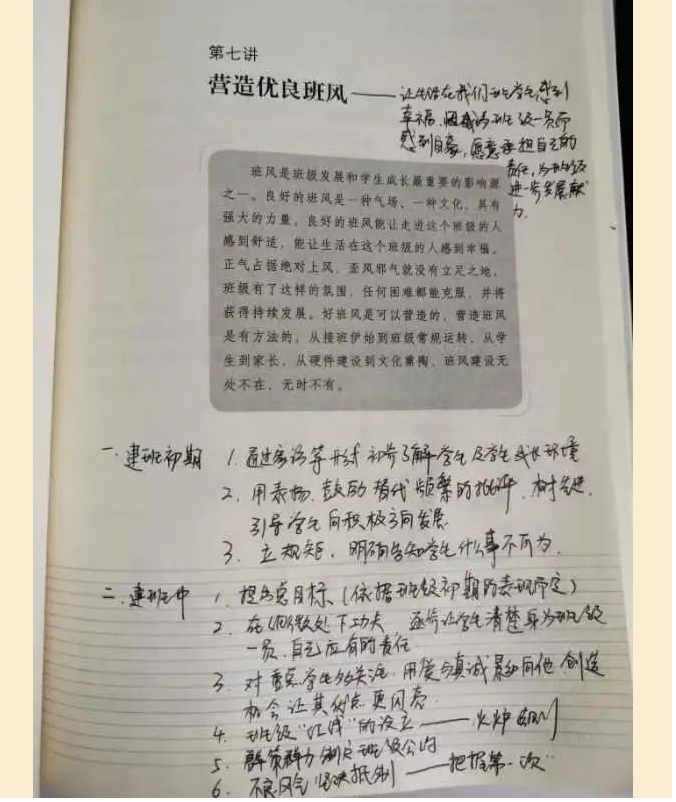 第七讲
营造优良班风——让生活在我们班学生感到
幸福、因我的班级一员而
感到自豪,愿意承担自己的
责任,为班级
进一步发展献
力。
班风是班级发展和学生成长最重要的影响源
之一。良好的班风是一种气场、一种文化,具有
强大的力量。良好的班风能让走进这个班级的人
感到舒适,能让生活在这个班级的人感到幸福。
正气占据绝对上风,歪风邪气就没有立足之地。
班级有了这样的氛围,任何困难都能克服,并将
获得持续发展。好班风是可以营造的,营造班风
是有方法的,从接班伊始到班级常规运转,从学
生到家长,从硬件建设到文化熏陶,班风建设无
处不在,无时不有。
一、建班初期 1.通过家访等形式初步了解学生及学生成长环境
2.用表扬、鼓励替代频繁的批评,树先进,
引导学生向积极方向发展
3.立规矩,明确告知学生什么事不可为。
二、建班中 1.提出总目标(依据班级初期的表现而定)
2.在细微处下功夫 逐步让学生清楚身为班级
一员,自己应有的责任
3.对重点学生多关注,用爱与真诚影响他,创造
机会让其优点更闪亮
4.班级“红线”的设立——火炉法则
5.群策群力制定班级公约
6.不良风气坚决抵制——把握第一次”